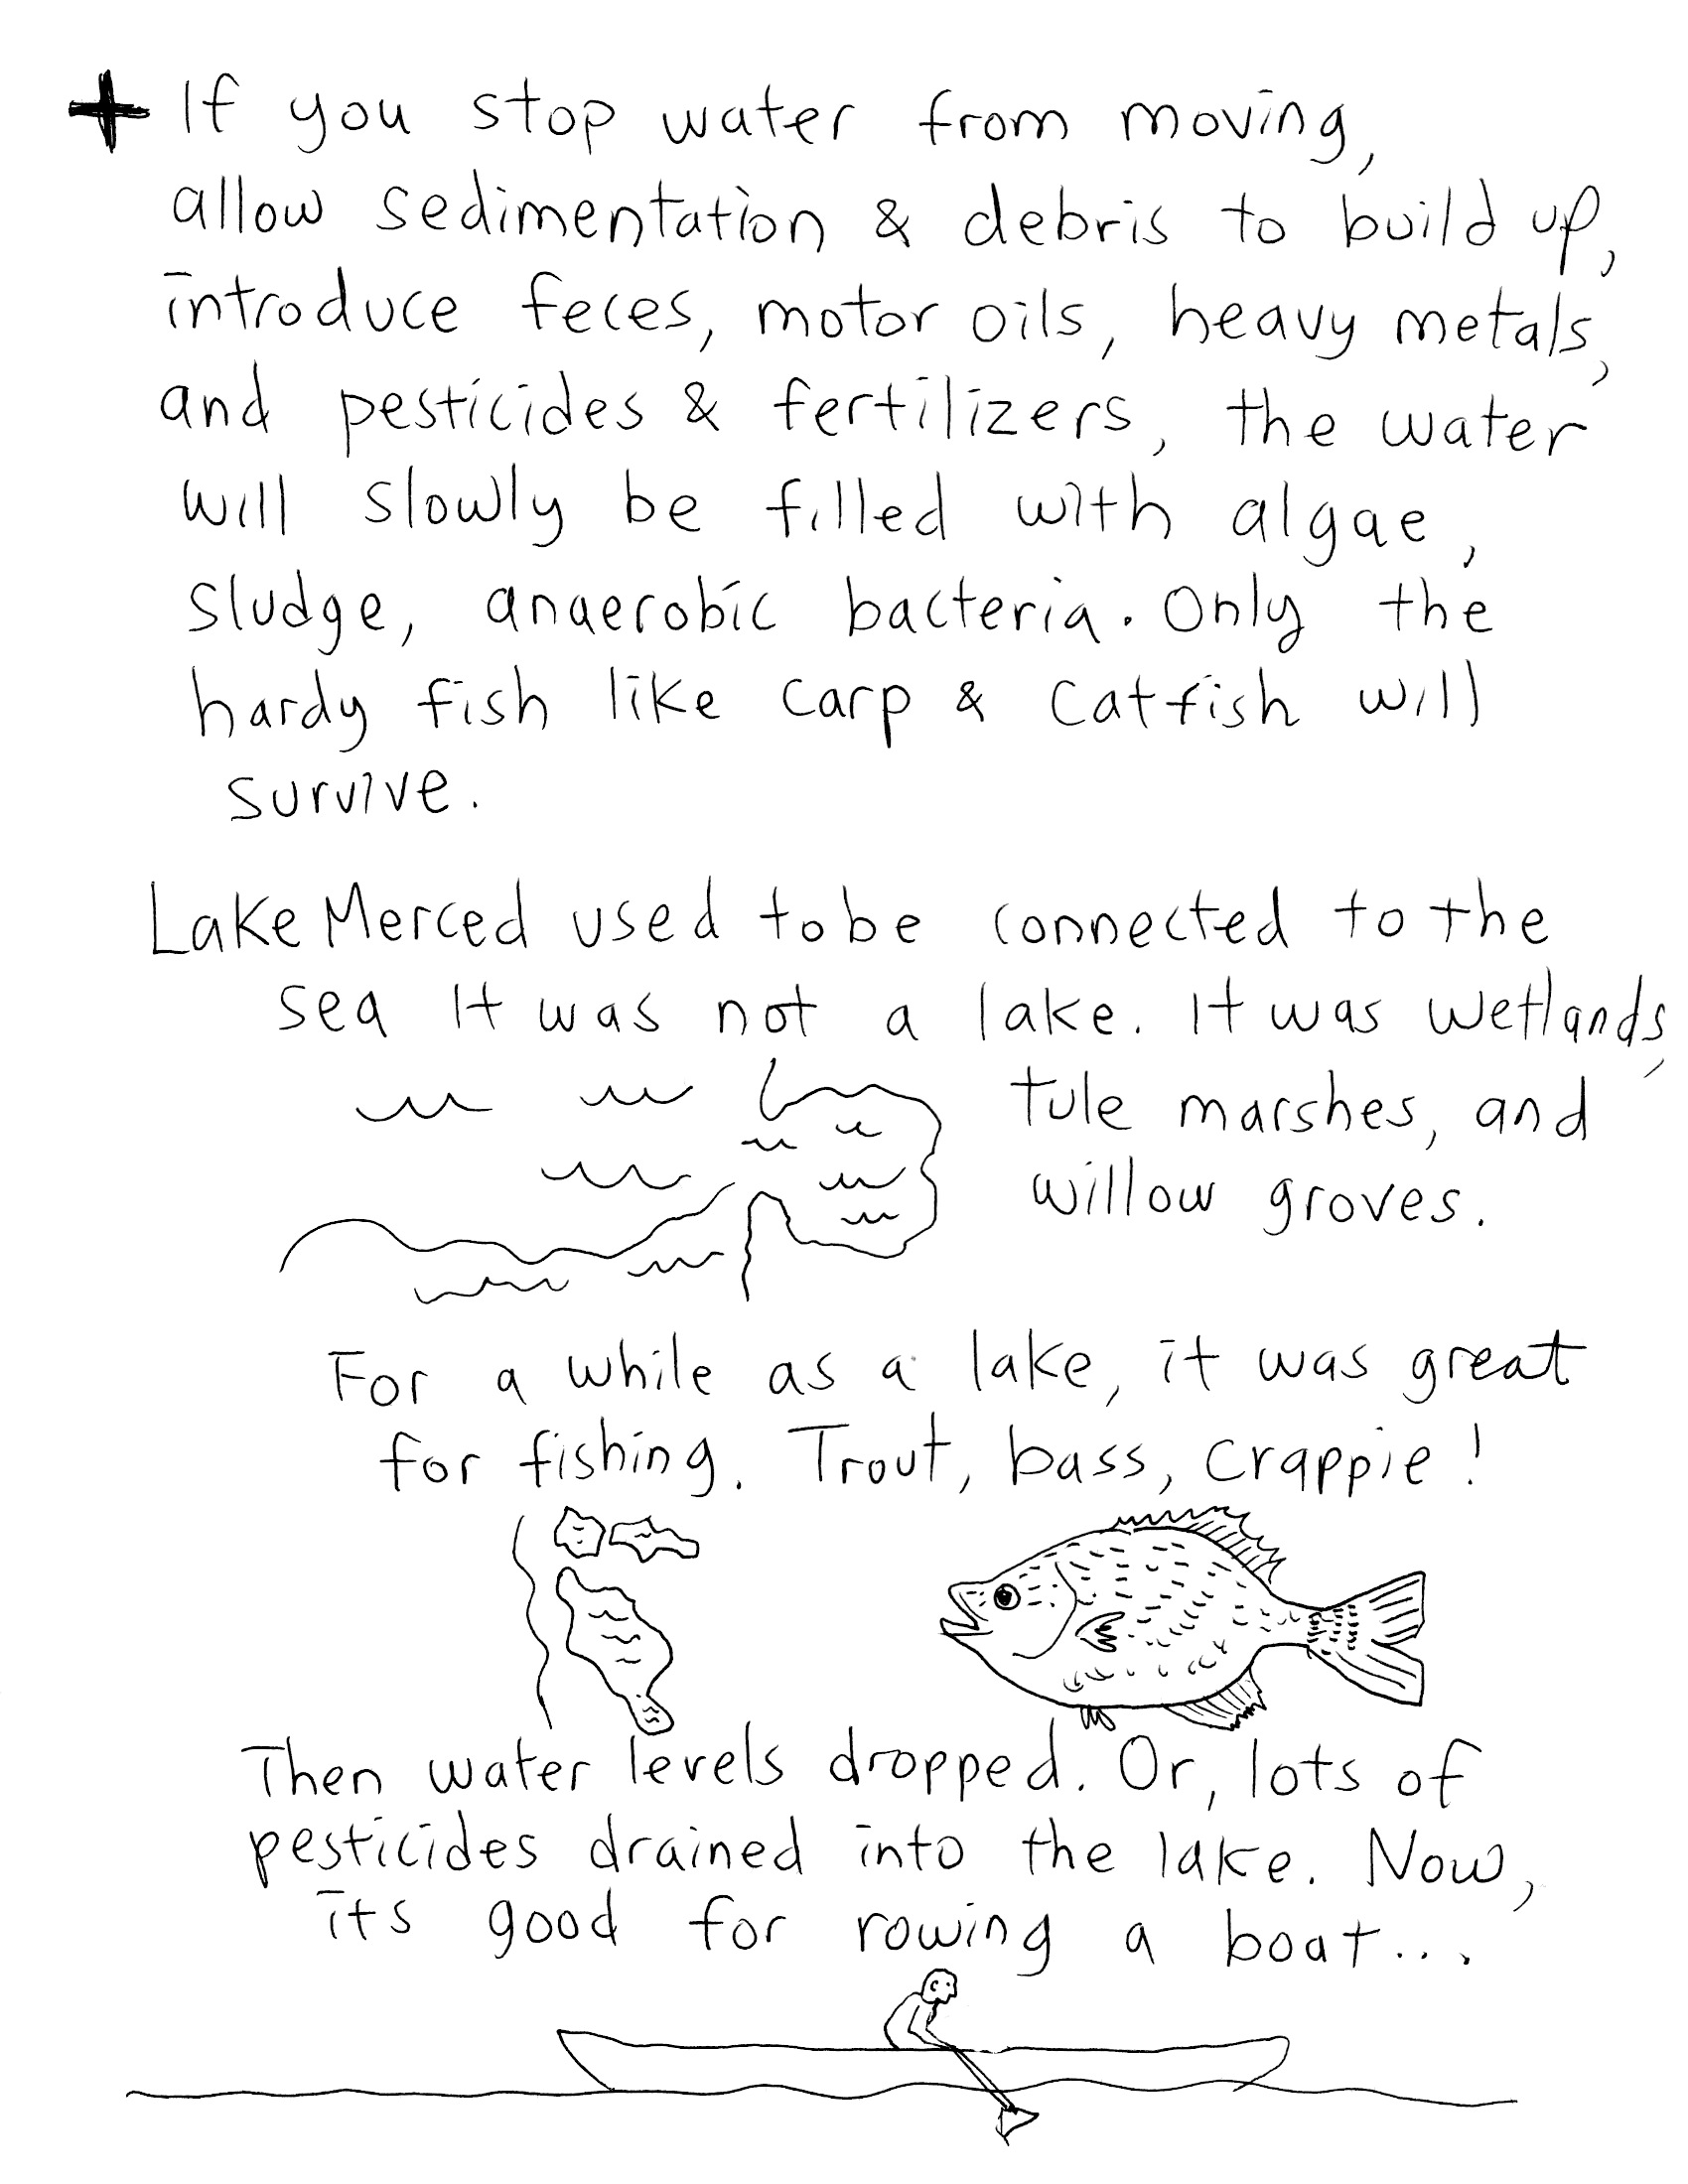 + If you stop water from moving,
allow sedimentation & debris to build up,
introduce feces, motor oils, heavy metals,
and pesticides & fertilizers, the water
will slowly be filled with algae,
sludge, anaerobic bacteria. Only the
hardy fish like carp & catfish will
survive.
Lake Merced used to be connected to the
sea It was not a lake. It was wetlands,
tule marshes, and
willow groves.
For a while as a lake, it was great
for fishing. Trout, bass, crappie!
Then water levels dropped. Or, lots of
pesticides drained into the lake. Now,
its good for rowing a boat...